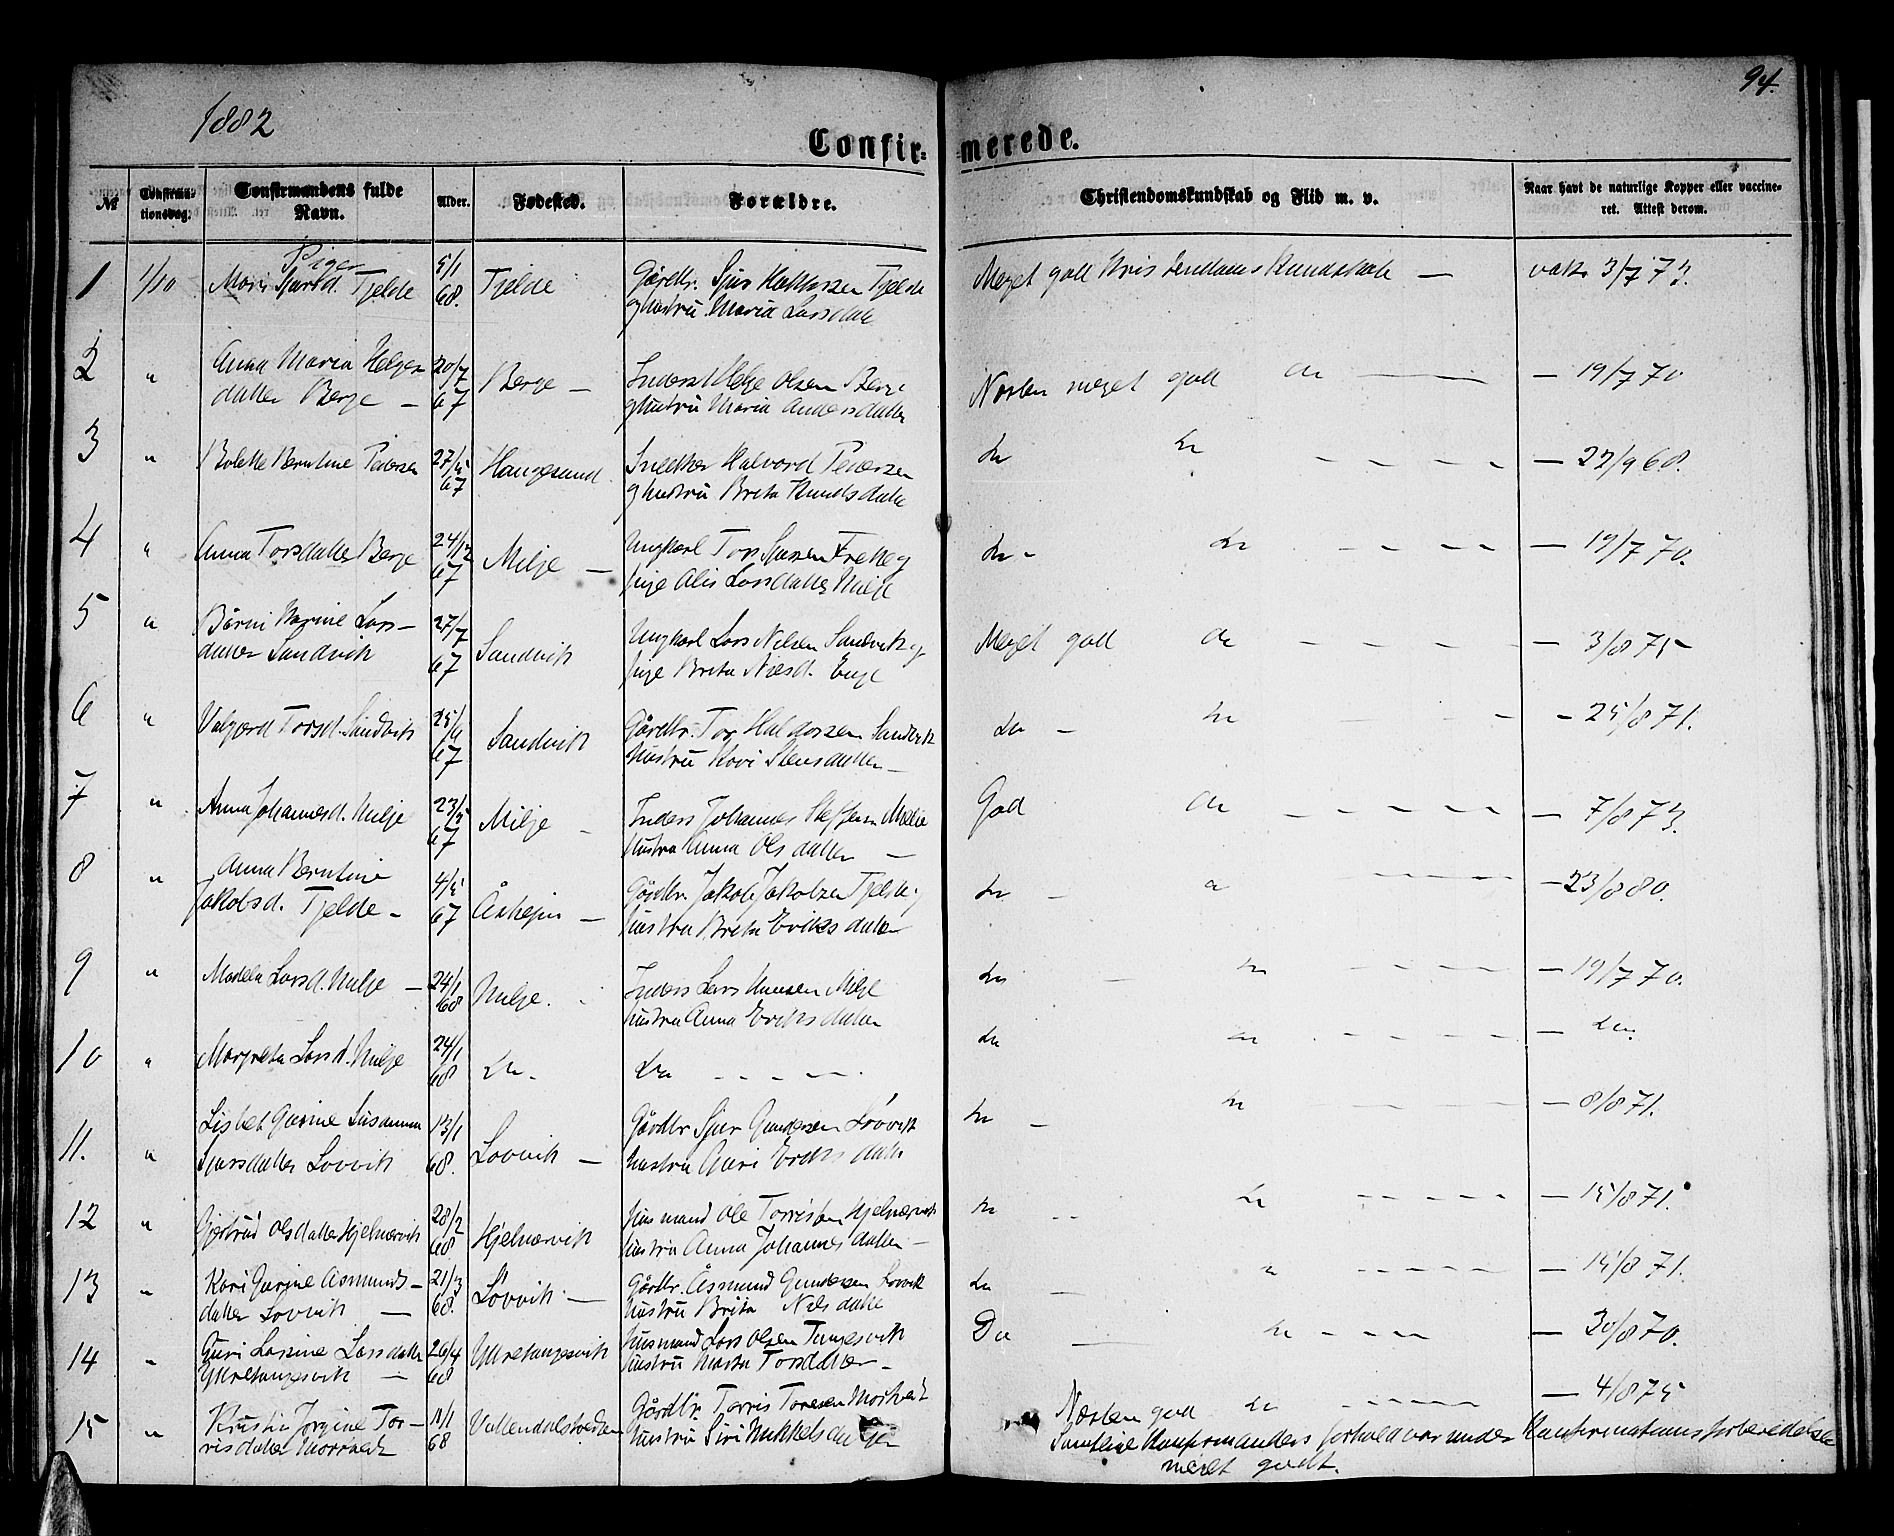 1882
94.
Confirmerede.
№ Confirmationsdag. Confirmandens fulde Navn. Alder. Fødested. Forældre. Christendomskundskab og Flid m. v. Naar havt de naturlige Kopper eller vaccineret. Attest derom.
Piger
1 1/10 Sjursd. Tjelde 5/1 68. Tjelde Gårdbr. Sjur Tjelde Meget god Kundskab — vak. 3/7 73.
og hustru Maria Larsdatter
2 " Anna Maria Helges- 20/7 Berge — Inderst Helje Olsen Berge Næsten meget god do — 19/7 70
datter Berge — 67 og hustru Maria Andersdatter
3 " Bolette Berntine Pedersen 27/5 Haugesund Halvord Pedersen do do — 22/9 68.
67 og hustru Brita Knudsdatter
4 " Anna Torsdatter Berge 24/12 Milje — Ungkarl Tor Sjursen og do do — 19/7 70.
67 pige Larsdatter Milje
5 " Karine Lars- 27/7 Sandvik Ungkarl Lars Nilsen Sandvik og Meget god do — 3/8 75
datter Sandvik 67 pige Brita Nilsd. Enge
6 " Valgjerd Torsd. Sandvik 25/6 Sandvik Gårdbr. Tor Haldorsen Sandvik do do — 25/8 71.
67 hustru Kari Stensdatter —
7 " Anna Johannesd. Milje 23/5 Milje — Inders Johannes Steffensen Milje God do — 7/8 73.
67 hustru Anna Olsdatter —
8 " Anna Berntine 4/5 — Gårdbr. Jakob Jakobsen Tjelde og do — 23/8 80.
Jakobsd. Tjelde — 67 hustru Brita Eriksdatter
9 " Larsd. Milje — 24/1 68 Milje. Inders Lars Hansen Milje do do — 19/7 70.
hustru Anna Eriksdatter
10 " Margreta Larsd. Milje 24/1 68 do. do do do — do.
Lisbet Gurine Susanna 13/1 Gårdbr Sjur Gundersen Løvvik do do — 8/8 71.
11. " Sjursdatter Lovvik 68. Lovvik — hustru Guri Eriksdatter
12 " Gjertrud Olsdatter Hjelnervik 28/2 68. Hjelnervik Husmand Ole Torrissen Hjelnervik do do — 15/8 71.
hustru Anna Johannesdatter —
13 " Kari Gurine Asmunds- 21/3 Løvvik — Gårdbr. Åsmund Gundersen Lovvik do " — 15/8 71.
datter Lovvik — 68. hustru Brita Nilsdatter
14 " Guri Larsine Larsdatter 26/4 Ytretungesvik Husmand Lars Olsen Tungesvik Do — do — 30/8 70.
Ytretungesvik — 68 hustru Marta Torsdatter —
15 " Jorgine Tor- 11/1 Gårdbr. Torris Toresen Næsten god do — 4/8 75
risdatter 68 hustru Siri Mikkelsdatter
Samtlige Konfirmanders forhold var under Konfirmationsforberedelse
meget godt.